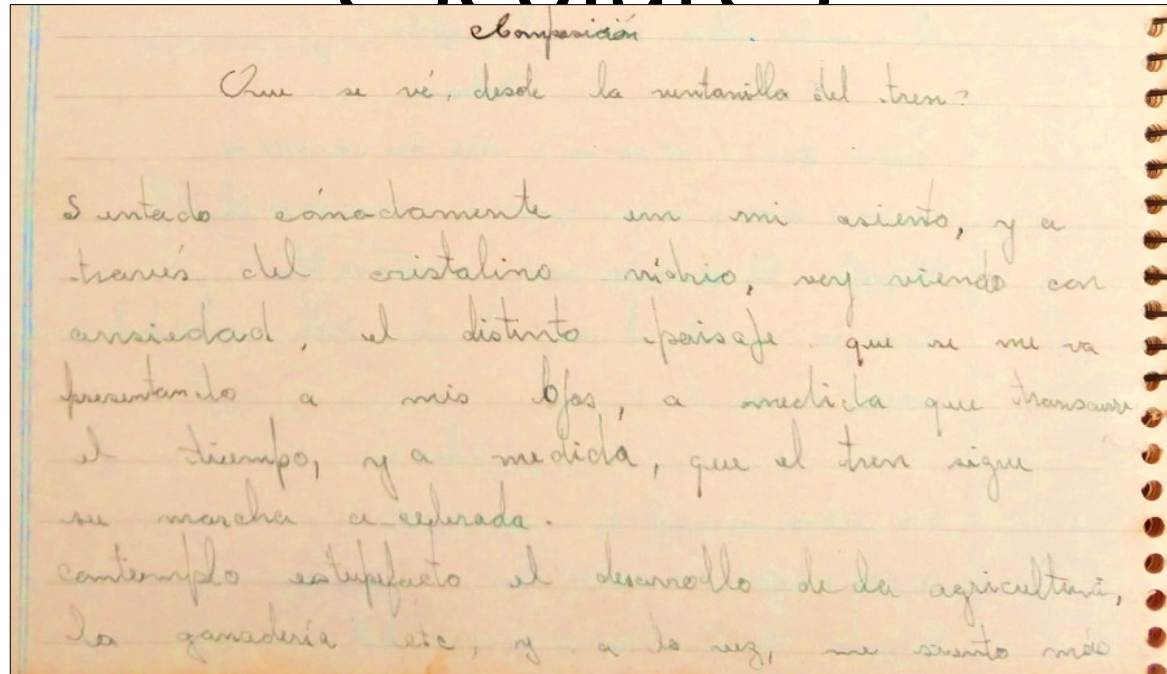 Composición
Que se vé, desde la ventanilla del tren?
Sentado cómodamente en mi asiento, y a
través del cristalino vidrio, voy viendo con
ansiedad, el distinto paisaje que se me va
presentando a mis ojos, a medida que transcurre
el tiempo, y a medida, que el tren sigue
su marcha acelerada.
contemplo estupefacto el desarrollo de la agricultura,
la ganadería etc, y a la vez, me siento más